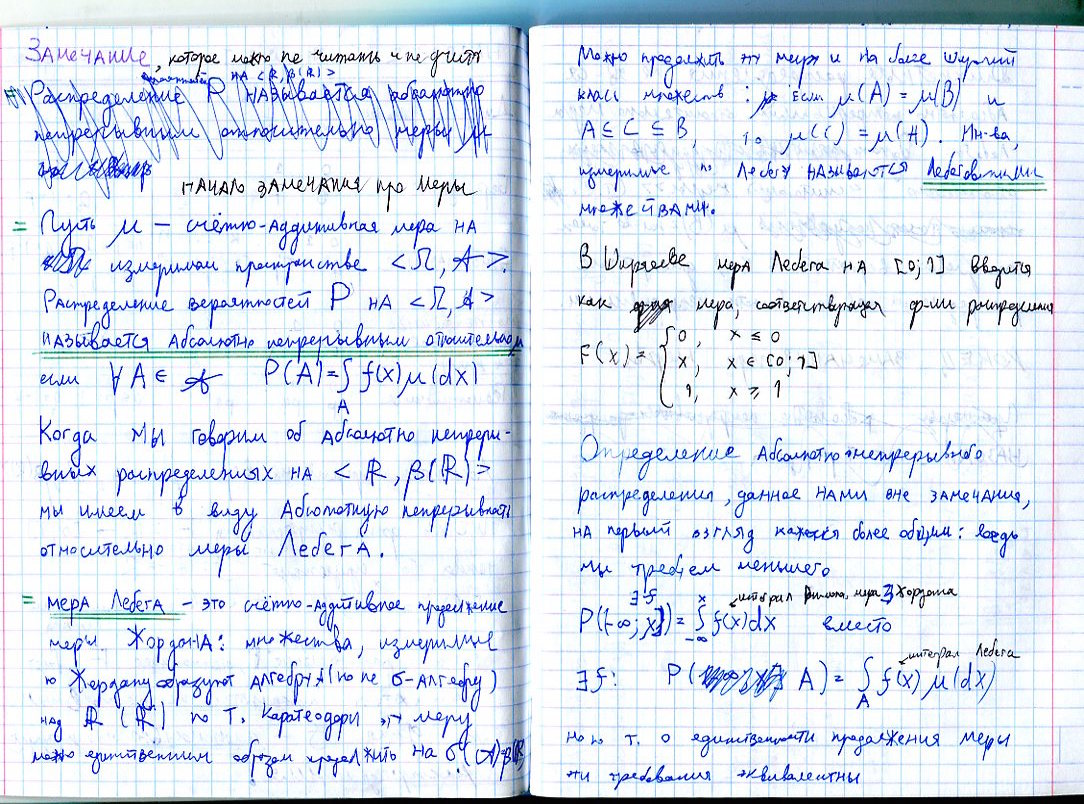 Замечание, которое можно не читать и не учить
на < ℝ, β(ℝ) >
Распределение P называется абсолютно
непрерывным относительно меры μ
начало замечания про меры
= Пусть μ — счётно-аддитивная мера на
измеримом пространстве < Ω, 𝒜 >.
Распределение вероятностей P на < Ω, 𝒜 >
называется абсолютно непрерывным относительно
если ∀ A ∈ 𝒜 P(A) = ∫ f(x) μ(dx)
A
Когда мы говорим об абсолютно непреры-
вных распределениях на < ℝ, β(ℝ) >
мы имеем в виду абсолютную непрерывность
относительно меры Лебега.
= мера Лебега - это счётно-аддитивное продолжение
меры Жордана: множества, измеримые
по Жордану образуют алгебру (но не σ-алгебру)
над ℝ (ℝ) по т. Каратеодори эту меру
можно единственным образом продолжить на σ(𝒜)
Можно продолжить эту меру и на более широкий
класс множеств: Если μ(A) = μ(B) и
A ⊆ C ⊆ B, то μ(C) = μ(A). Мн-ва,
измеримые по Лебегу называются Лебеговскими
множествами.
В Ширяеве мера Лебега на [0;1] вводится
как мера, соответствующая ф-ии распределения
F(x) = { 0, x ≤ 0
x, x ∈ [0;1]
1, x ≥ 1
Определение абсолютно непрерывного
распределения, данное нами вне замечания,
на первый взгляд кажется более общим: ведь
мы требуем меньшего
∃ f x интеграл Римана, мера Жордана
P((-∞; x]) = ∫ f(x)dx вместо
-∞
интеграл Лебега
∃ f: P( A) = ∫ f(x) μ(dx)
A
но по т. о единственности продолжения меры
эти требования эквивалентны